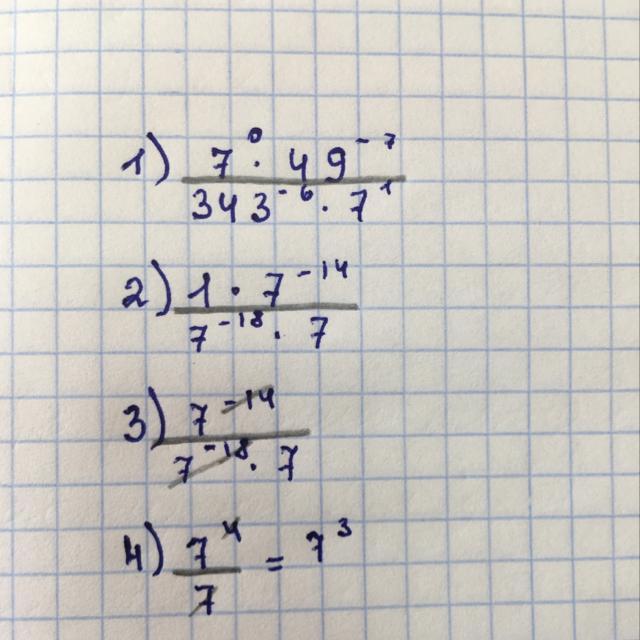 1) 7⁰ · 49⁻⁷
343⁻⁶ · 7¹
2) 1 · 7⁻¹⁴
7⁻¹⁸ · 7
3) 7⁻¹⁴
7⁻¹⁸ · 7
4) 7⁴ = 7³
7